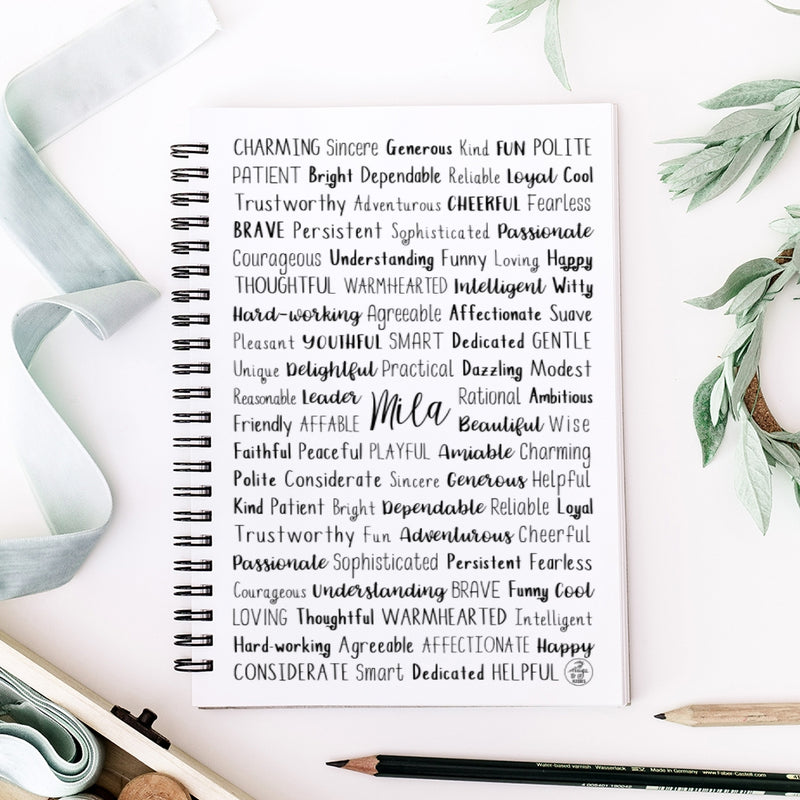 CHARMING Sincere Generous Kind FUN POLITE
PATIENT Bright Dependable Reliable Loyal Cool
Trustworthy Adventurous CHEERFUL Fearless
BRAVE Persistent Sophisticated Passionate
Courageous Understanding Funny Loving Happy
THOUGHTFUL WARMHEARTED Intelligent Witty
Hard-working Agreeable Affectionate Suave
Pleasant YOUTHFUL SMART Dedicated GENTLE
Unique Delightful Practical Dazzling Modest
Reasonable Leader Rational Ambitious
Mila
Friendly AFFABLE Beautiful Wise
Faithful Peaceful PLAYFUL Amiable Charming
Polite Considerate Sincere Generous Helpful
Kind Patient Bright Dependable Reliable Loyal
Trustworthy Fun Adventurous Cheerful
Passionate Sophisticated Persistent Fearless
Courageous Understanding BRAVE Funny Cool
LOVING Thoughtful WARMHEARTED Intelligent
Hard-working Agreeable AFFECTIONATE Happy
CONSIDERATE Smart Dedicated HELPFUL
Water-based varnish Wasserlack Made in Germany www.Faber-Castell.com